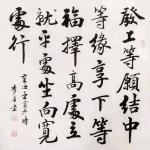 發上等願結中
等緣享下等
福擇高處立
就平處坐向寬
處行